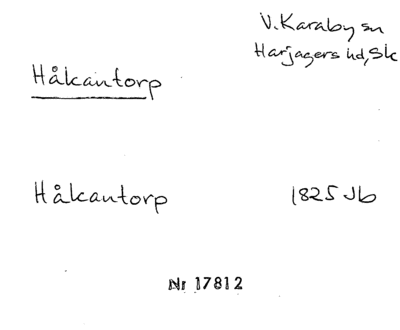 V. Karaby sn
Harjagers hd, Sk
Håkantorp
Håkantorp 1825 Jb
Nr 17812